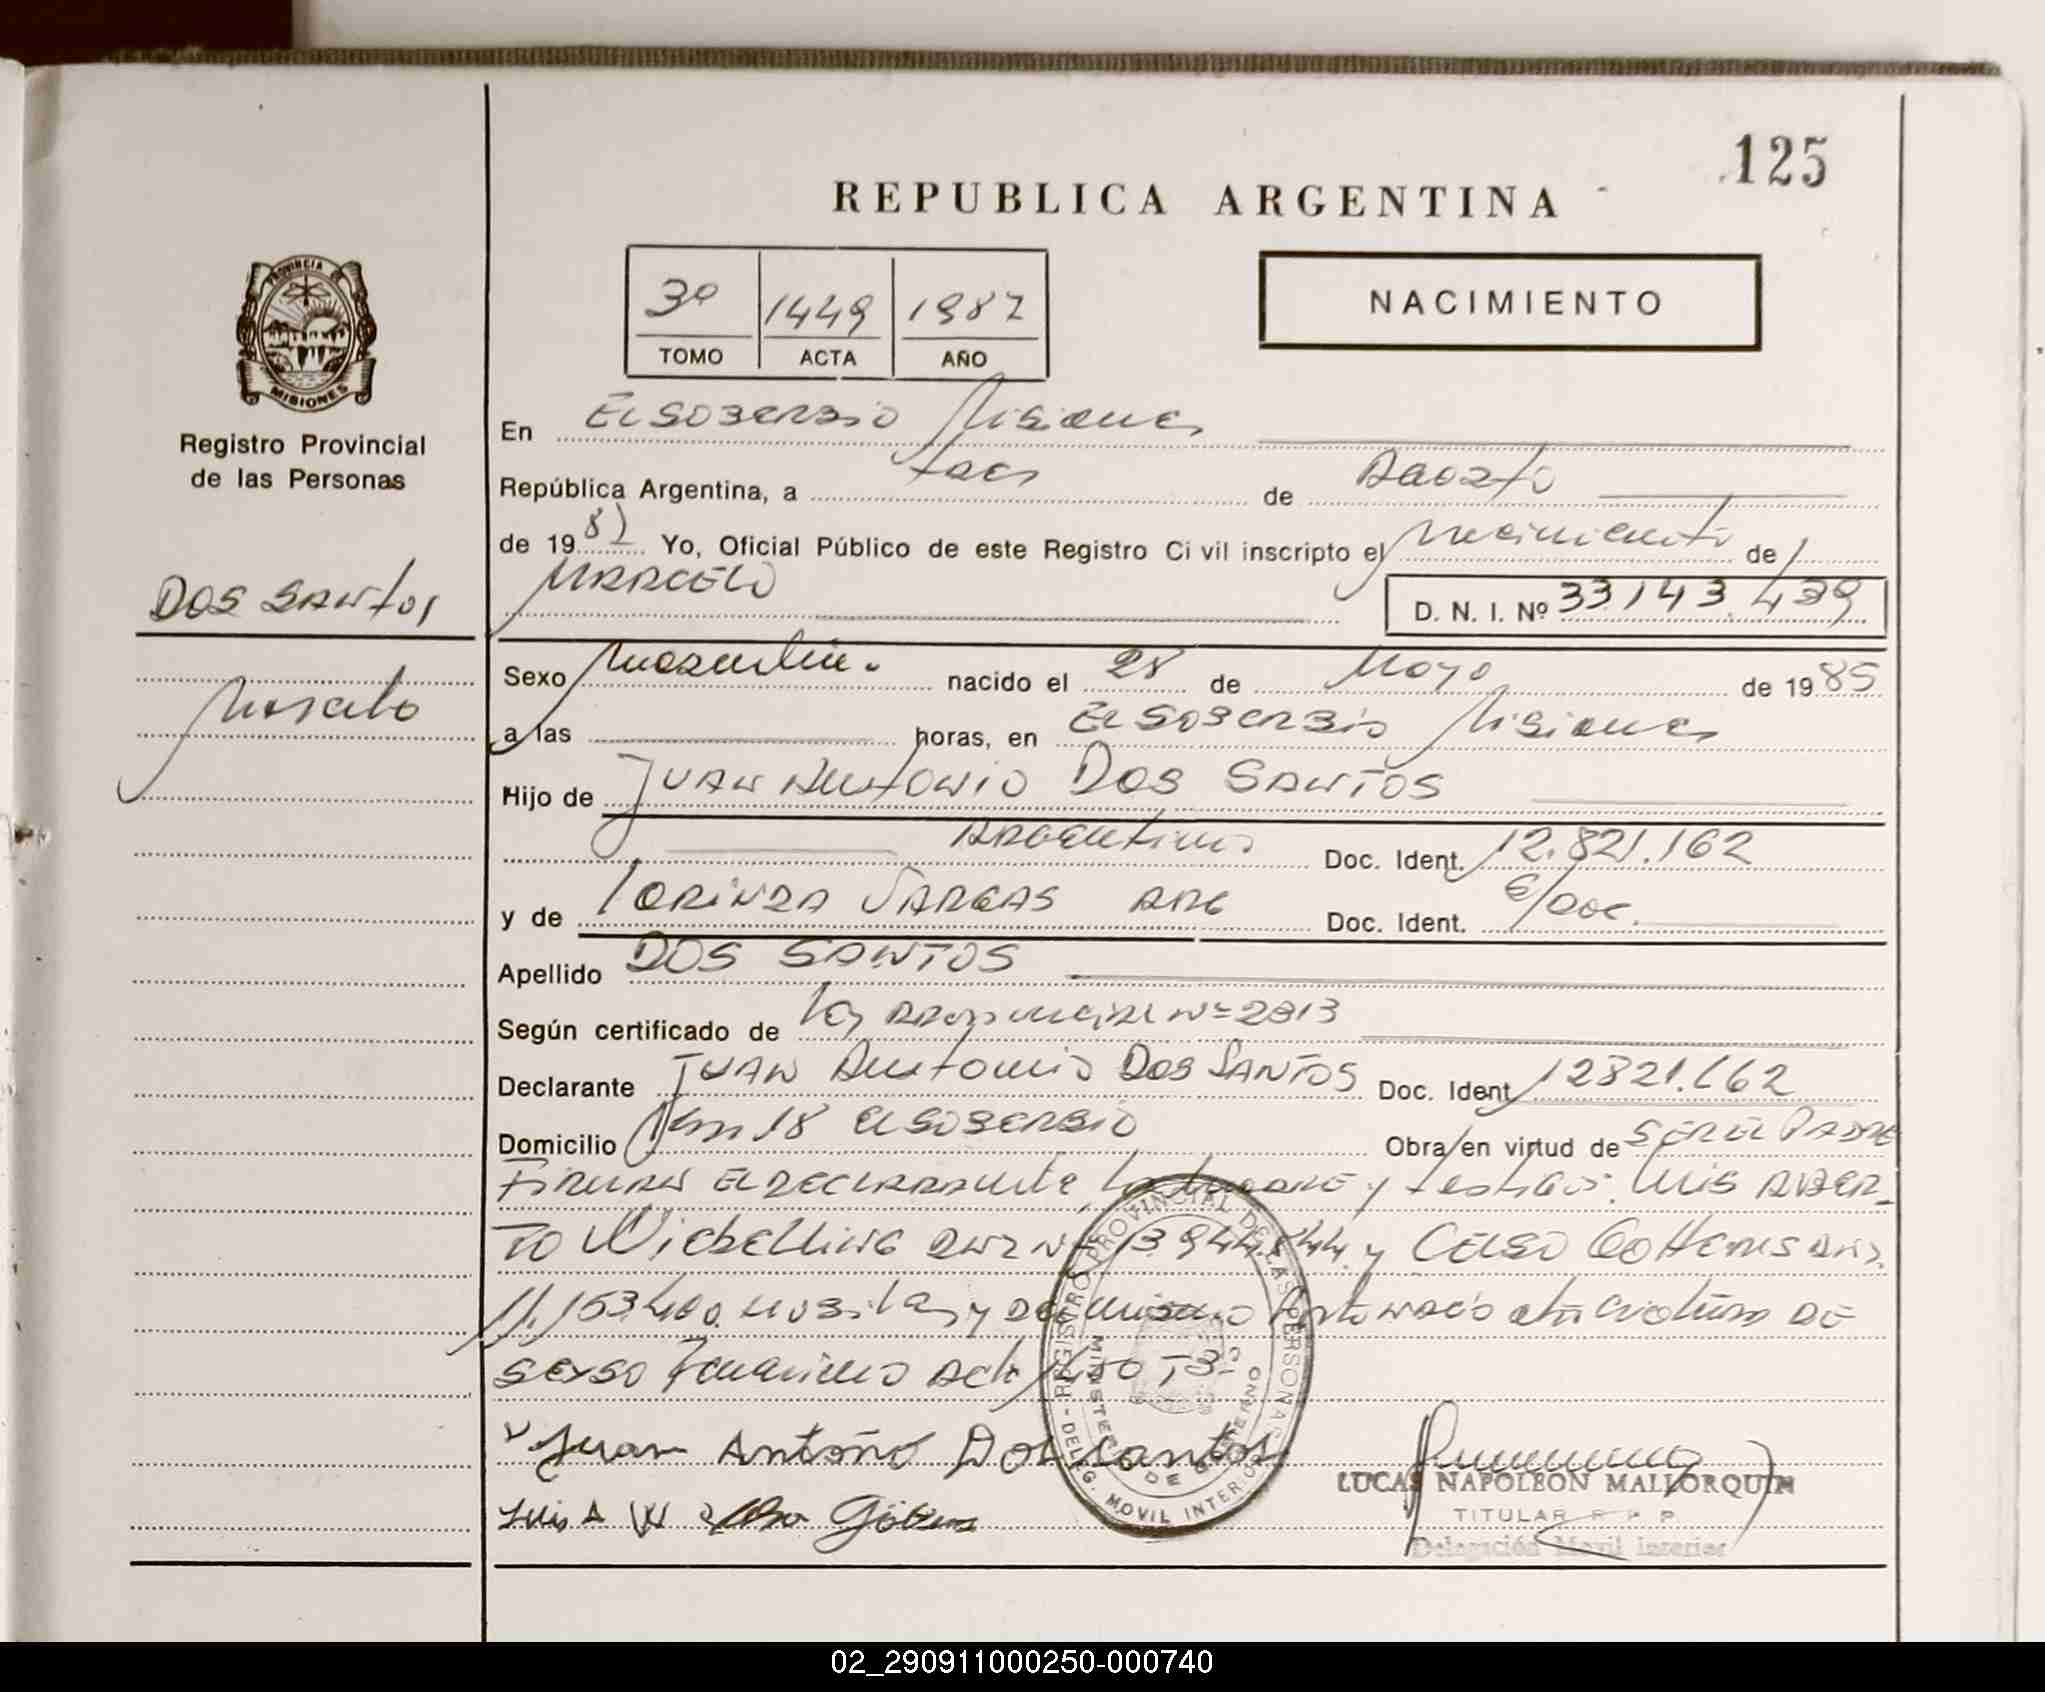 125
REPUBLICA ARGENTINA
3º 1449 1987
TOMO ACTA AÑO
NACIMIENTO
PROVINCIA DE
MISIONES
Registro Provincial
de las Personas
En El Soberbio Misiones
República Argentina, a tres de Agosto
de 1987 Yo, Oficial Público de este Registro Civil inscripto el nacimiento de
MARCELO
D. N. I. Nº 33143.439
DOS SANTOS
Marcelo
Sexo Masculino. nacido el 28 de Mayo de 1985
a las horas, en El Soberbio Misiones
Hijo de JUAN ANTONIO DOS SANTOS
Argentino Doc. Ident. 12.821.162
y de VARGAS ARG Doc. Ident. S/Doc.
Apellido DOS SANTOS
Según certificado de Ley Nº
Declarante JUAN Antonio DOS SANTOS Doc. Ident 12821.162
Domicilio Km 18 El Soberbio Obra en virtud de SER EL PADRE
Firman el declarante la madre y testigos: Luis Alber-
to y Celso
y del mismo nació otra criatura de
sexo femenino Acta T 3º
Juan Antonio Dos Santos
Luis A W
REGISTRO PROVINCIAL DE LAS PERSONAS - DELEG. MOVIL INTERIOR
MINISTERIO DE GOBIERNO
LUCAS NAPOLEON MALLORQUIN
TITULAR R P P
Delegación Movil Interior
02_290911000250-000740